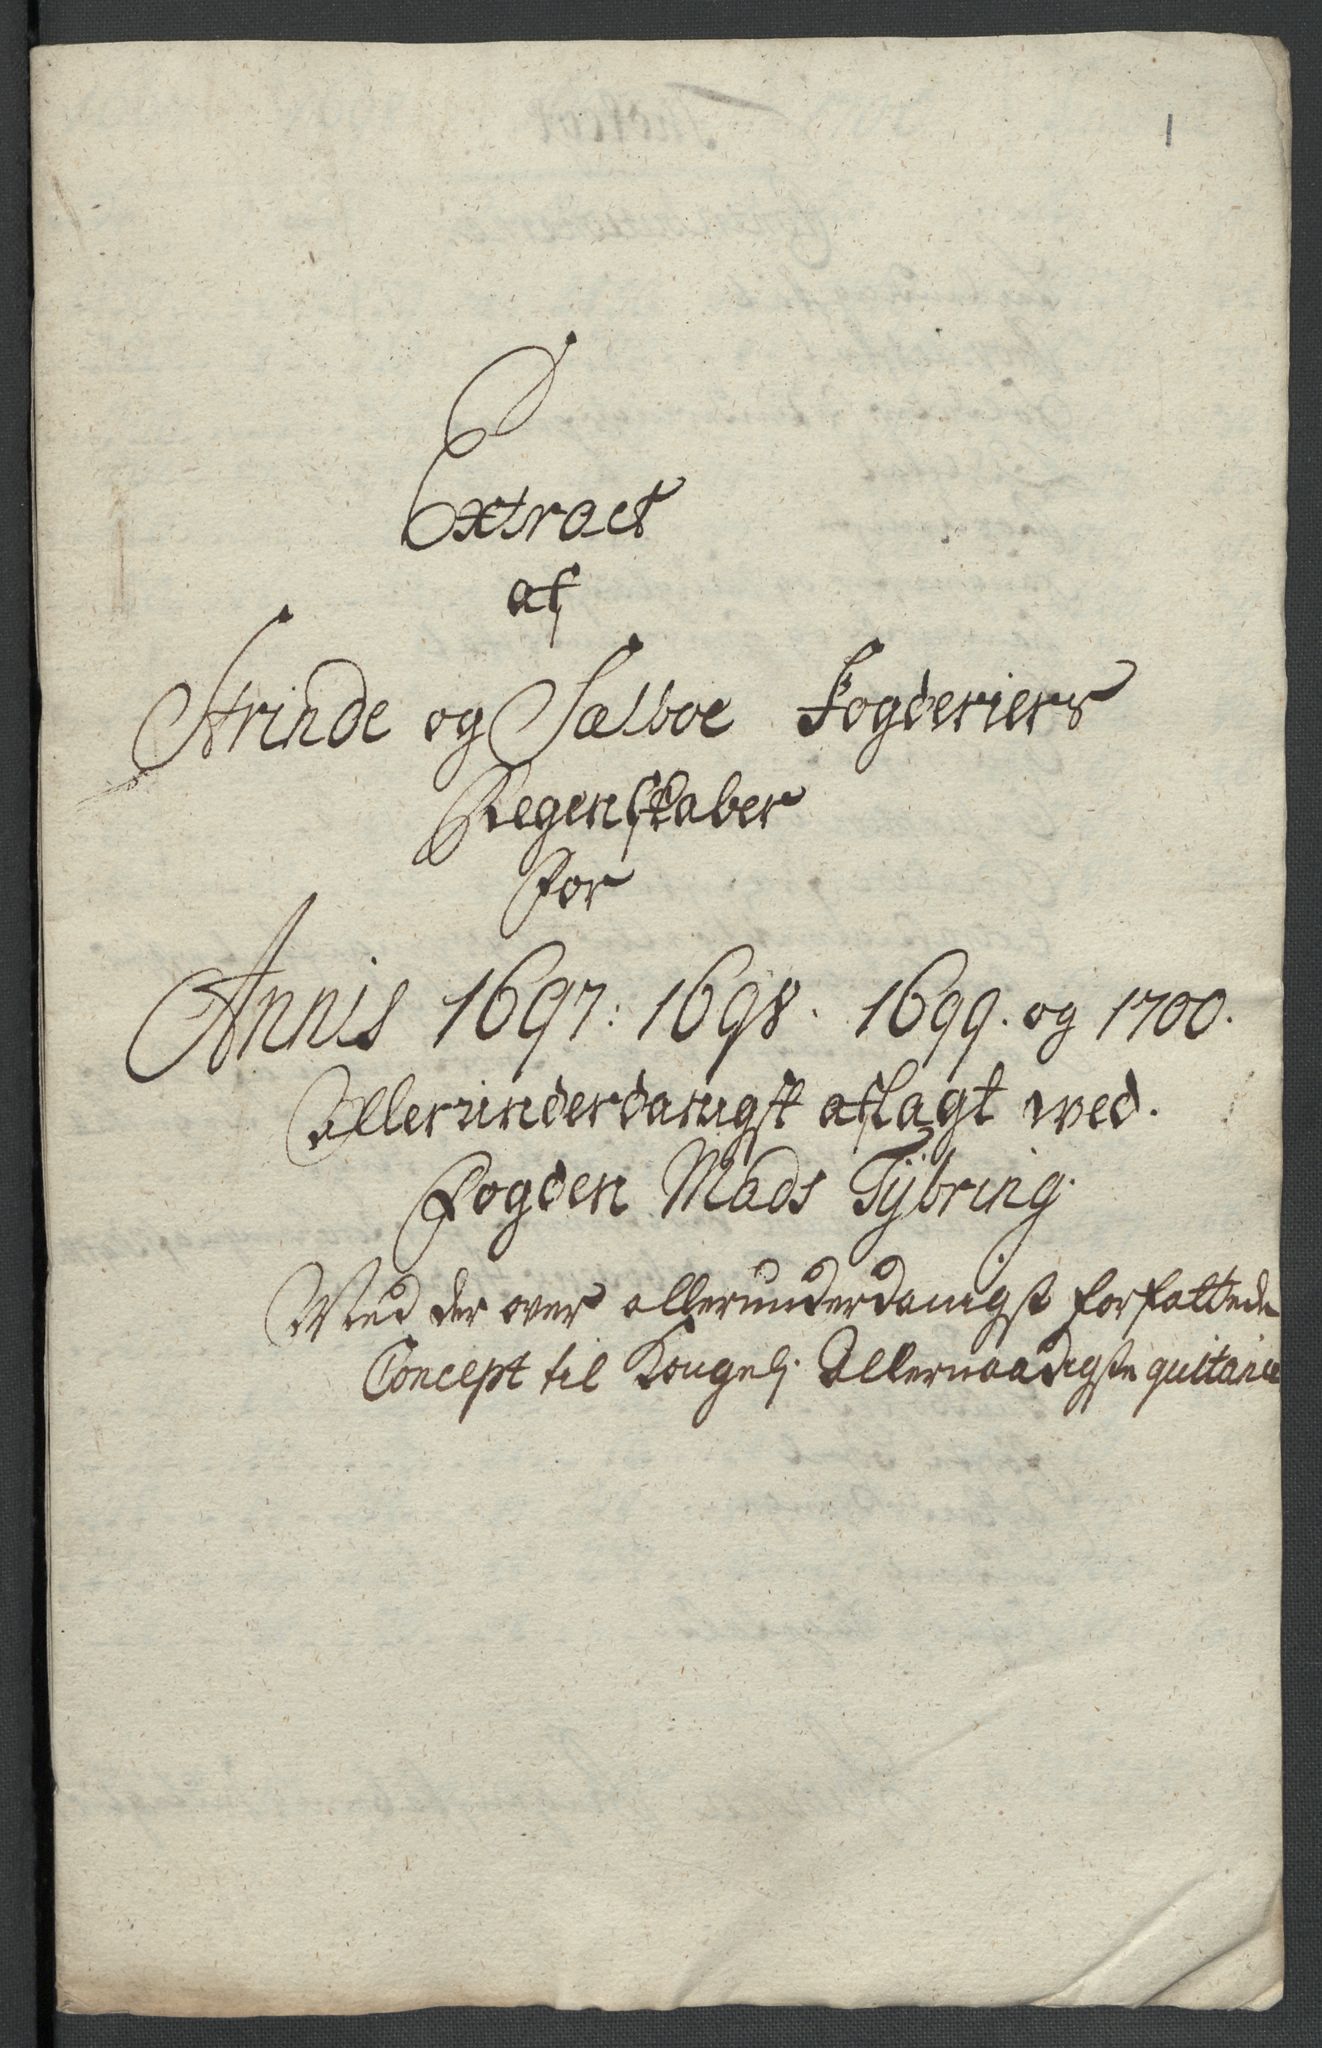 1
Extract
af
Strinde og Sælboe Fogderiers
Regenskaber
for
Annis 1697: 1698. 1699. og 1700.
Allerunderdanigst aflagt wed.
Fogden Mads Tÿbring.
Med der over allerunderdanigst forfattede
Concept til Kongel: Allernaadigste quitance